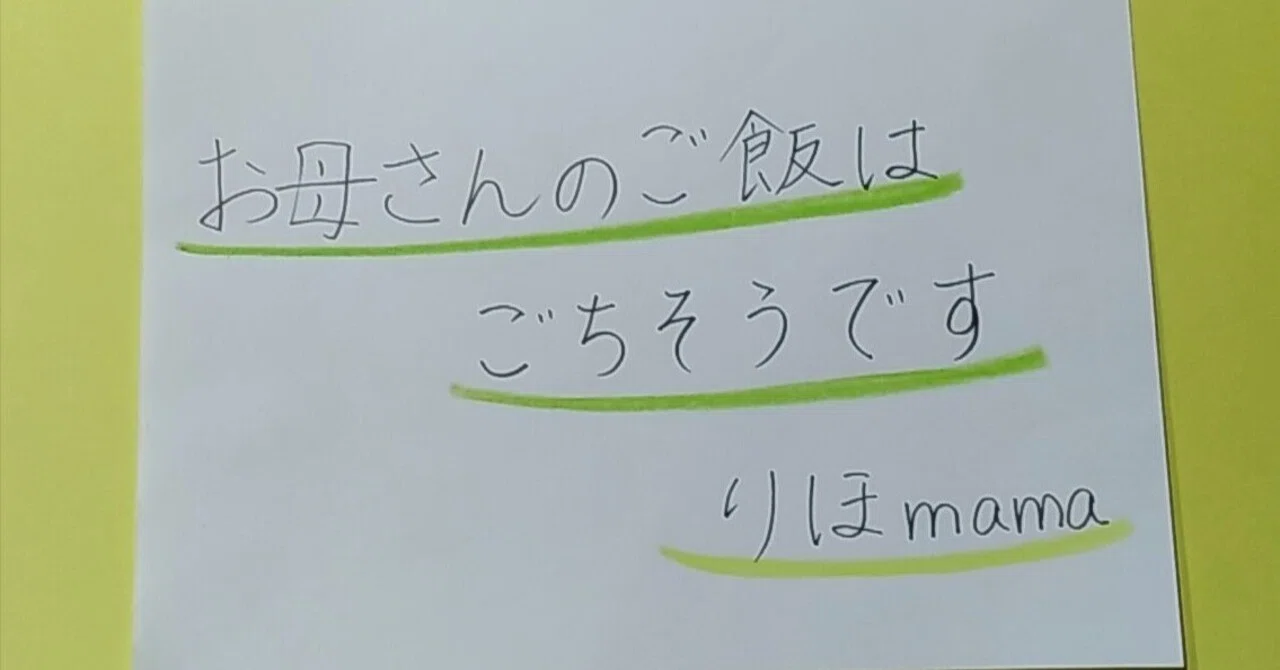 お母さんのご飯は
ごちそうです
りほmama